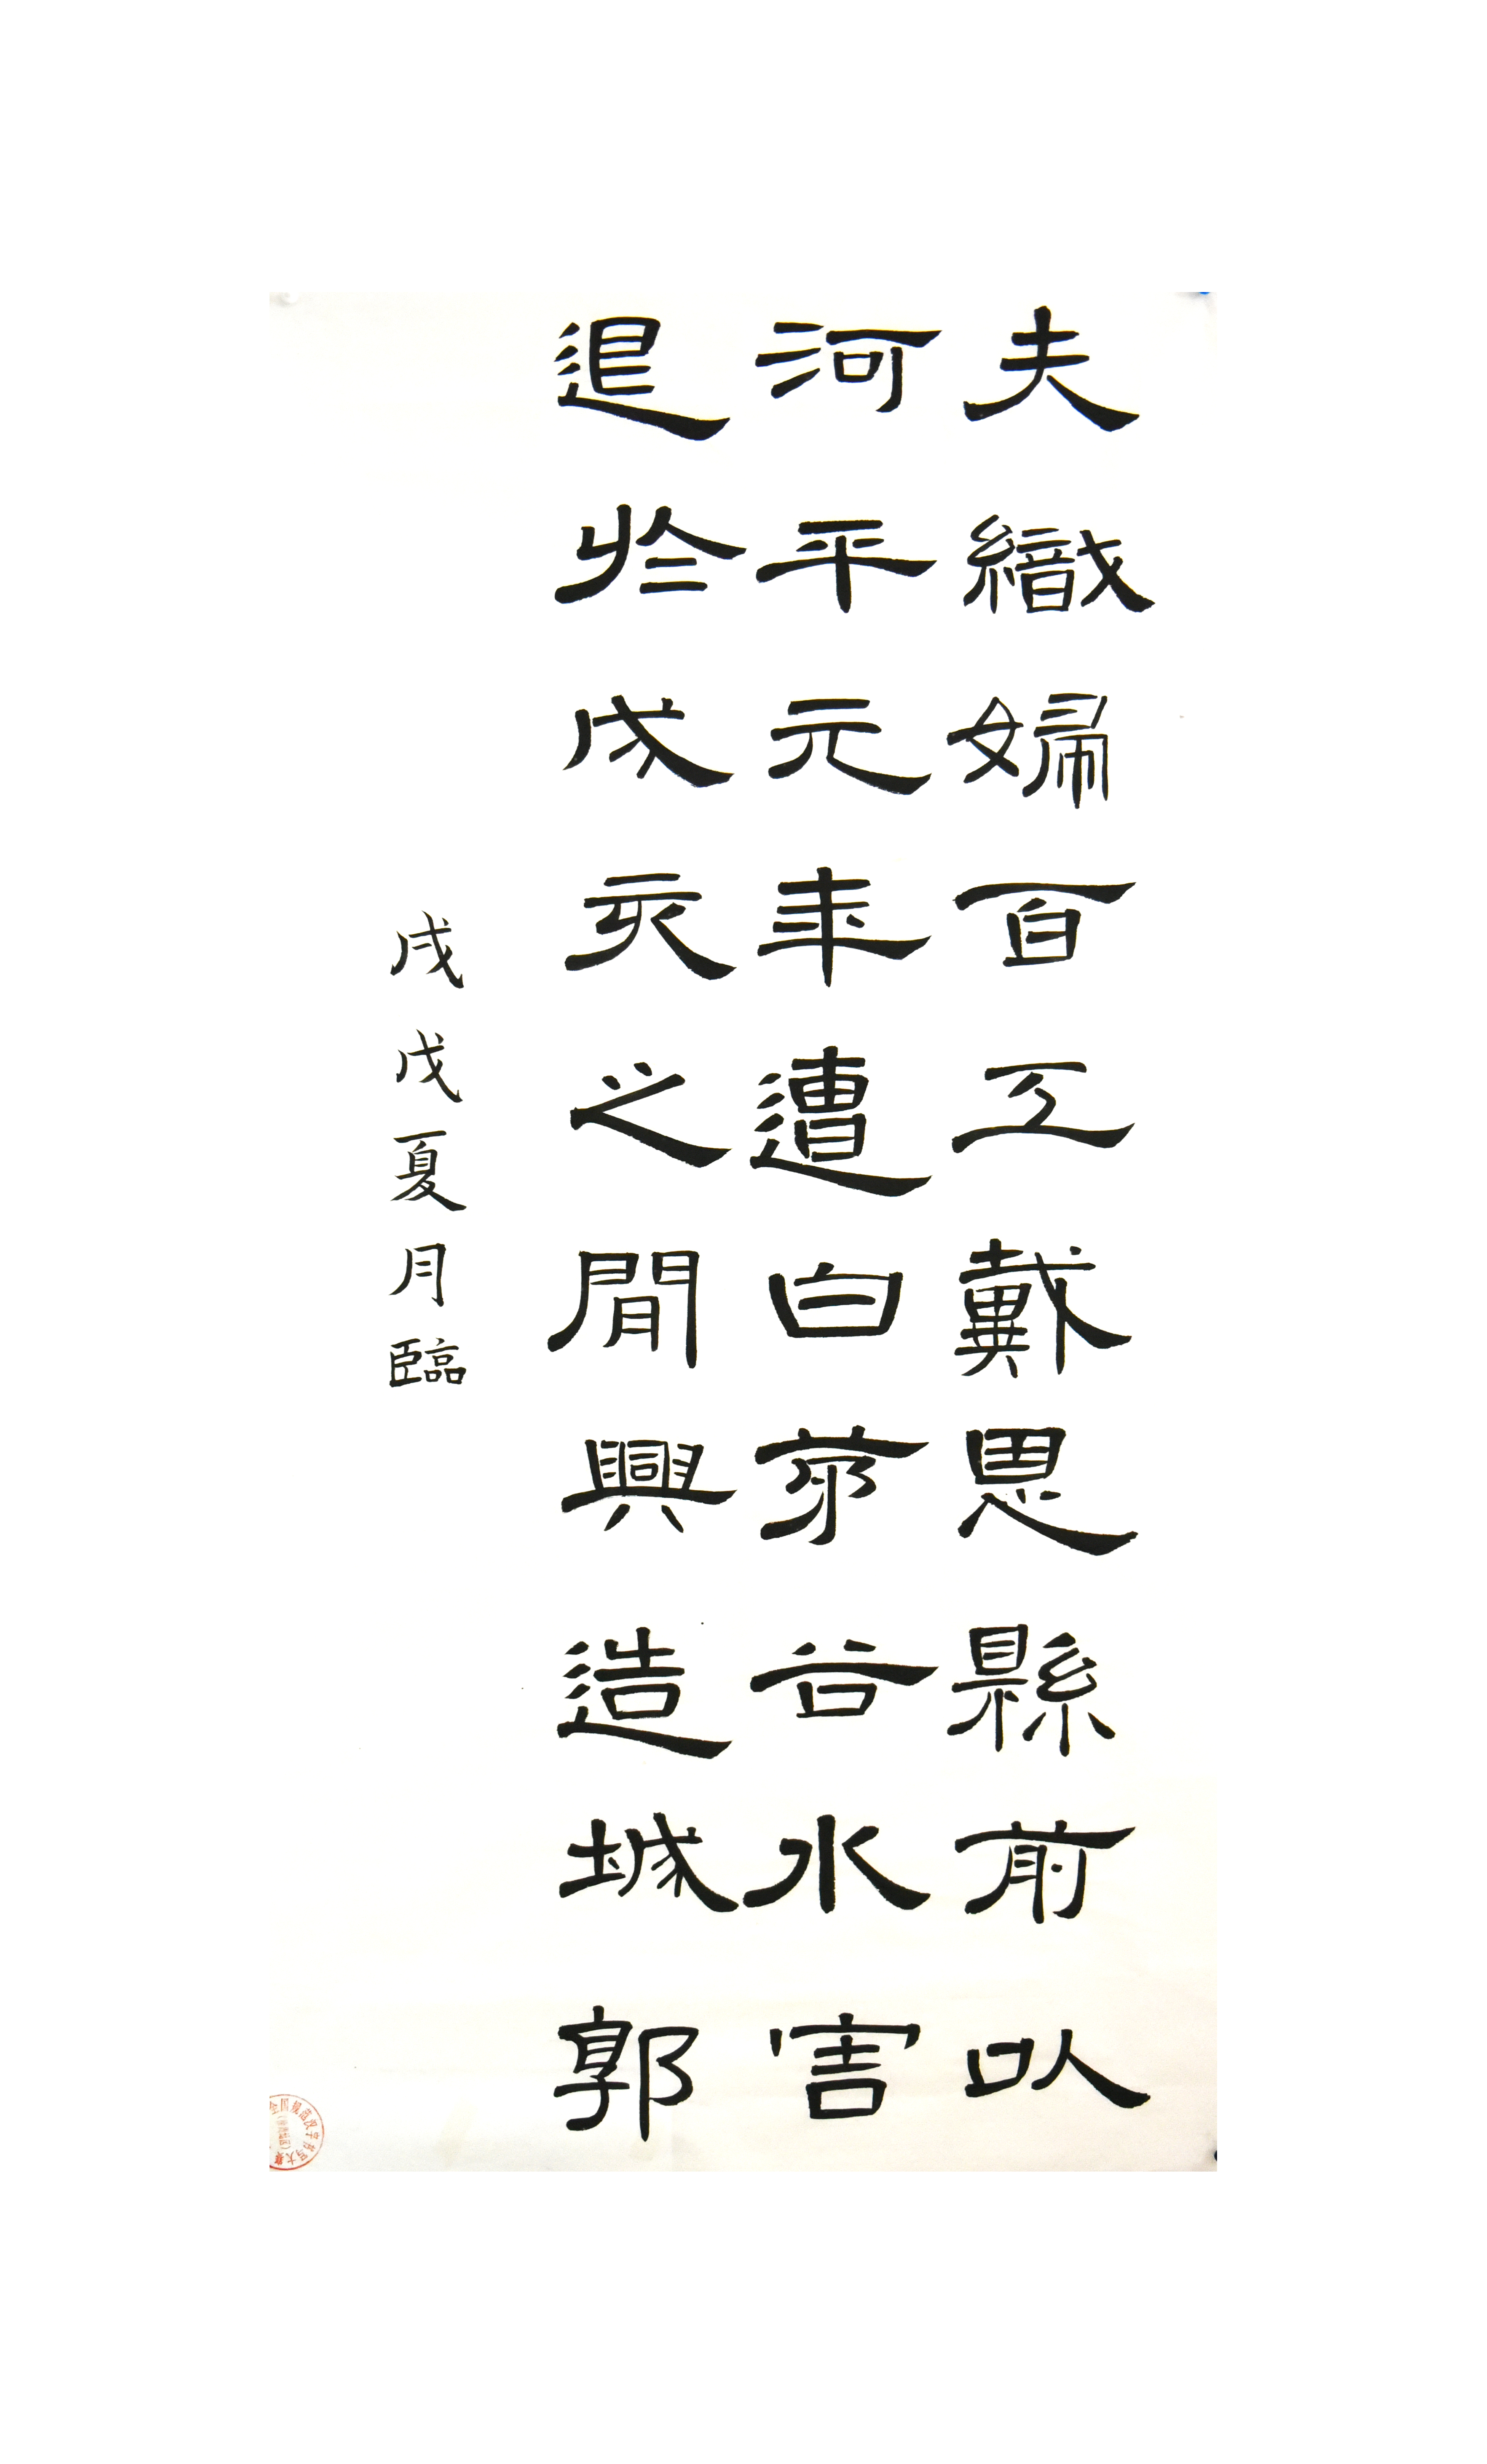 夫織婦百工戴恩縣前以
河平元年遭白茅谷水害
退於戌亥之閒興造城郭
戌戊夏月臨